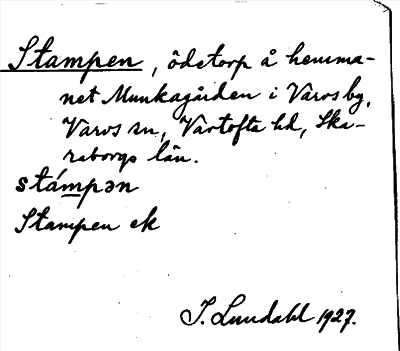 Stampen, ödetorp å hemma-
net Munkagården i Varvs by,
Varvs sn, Vartofta hd, Ska-
raborgs län.
stámpən
Stampen ek
I. Lundahl 1927.